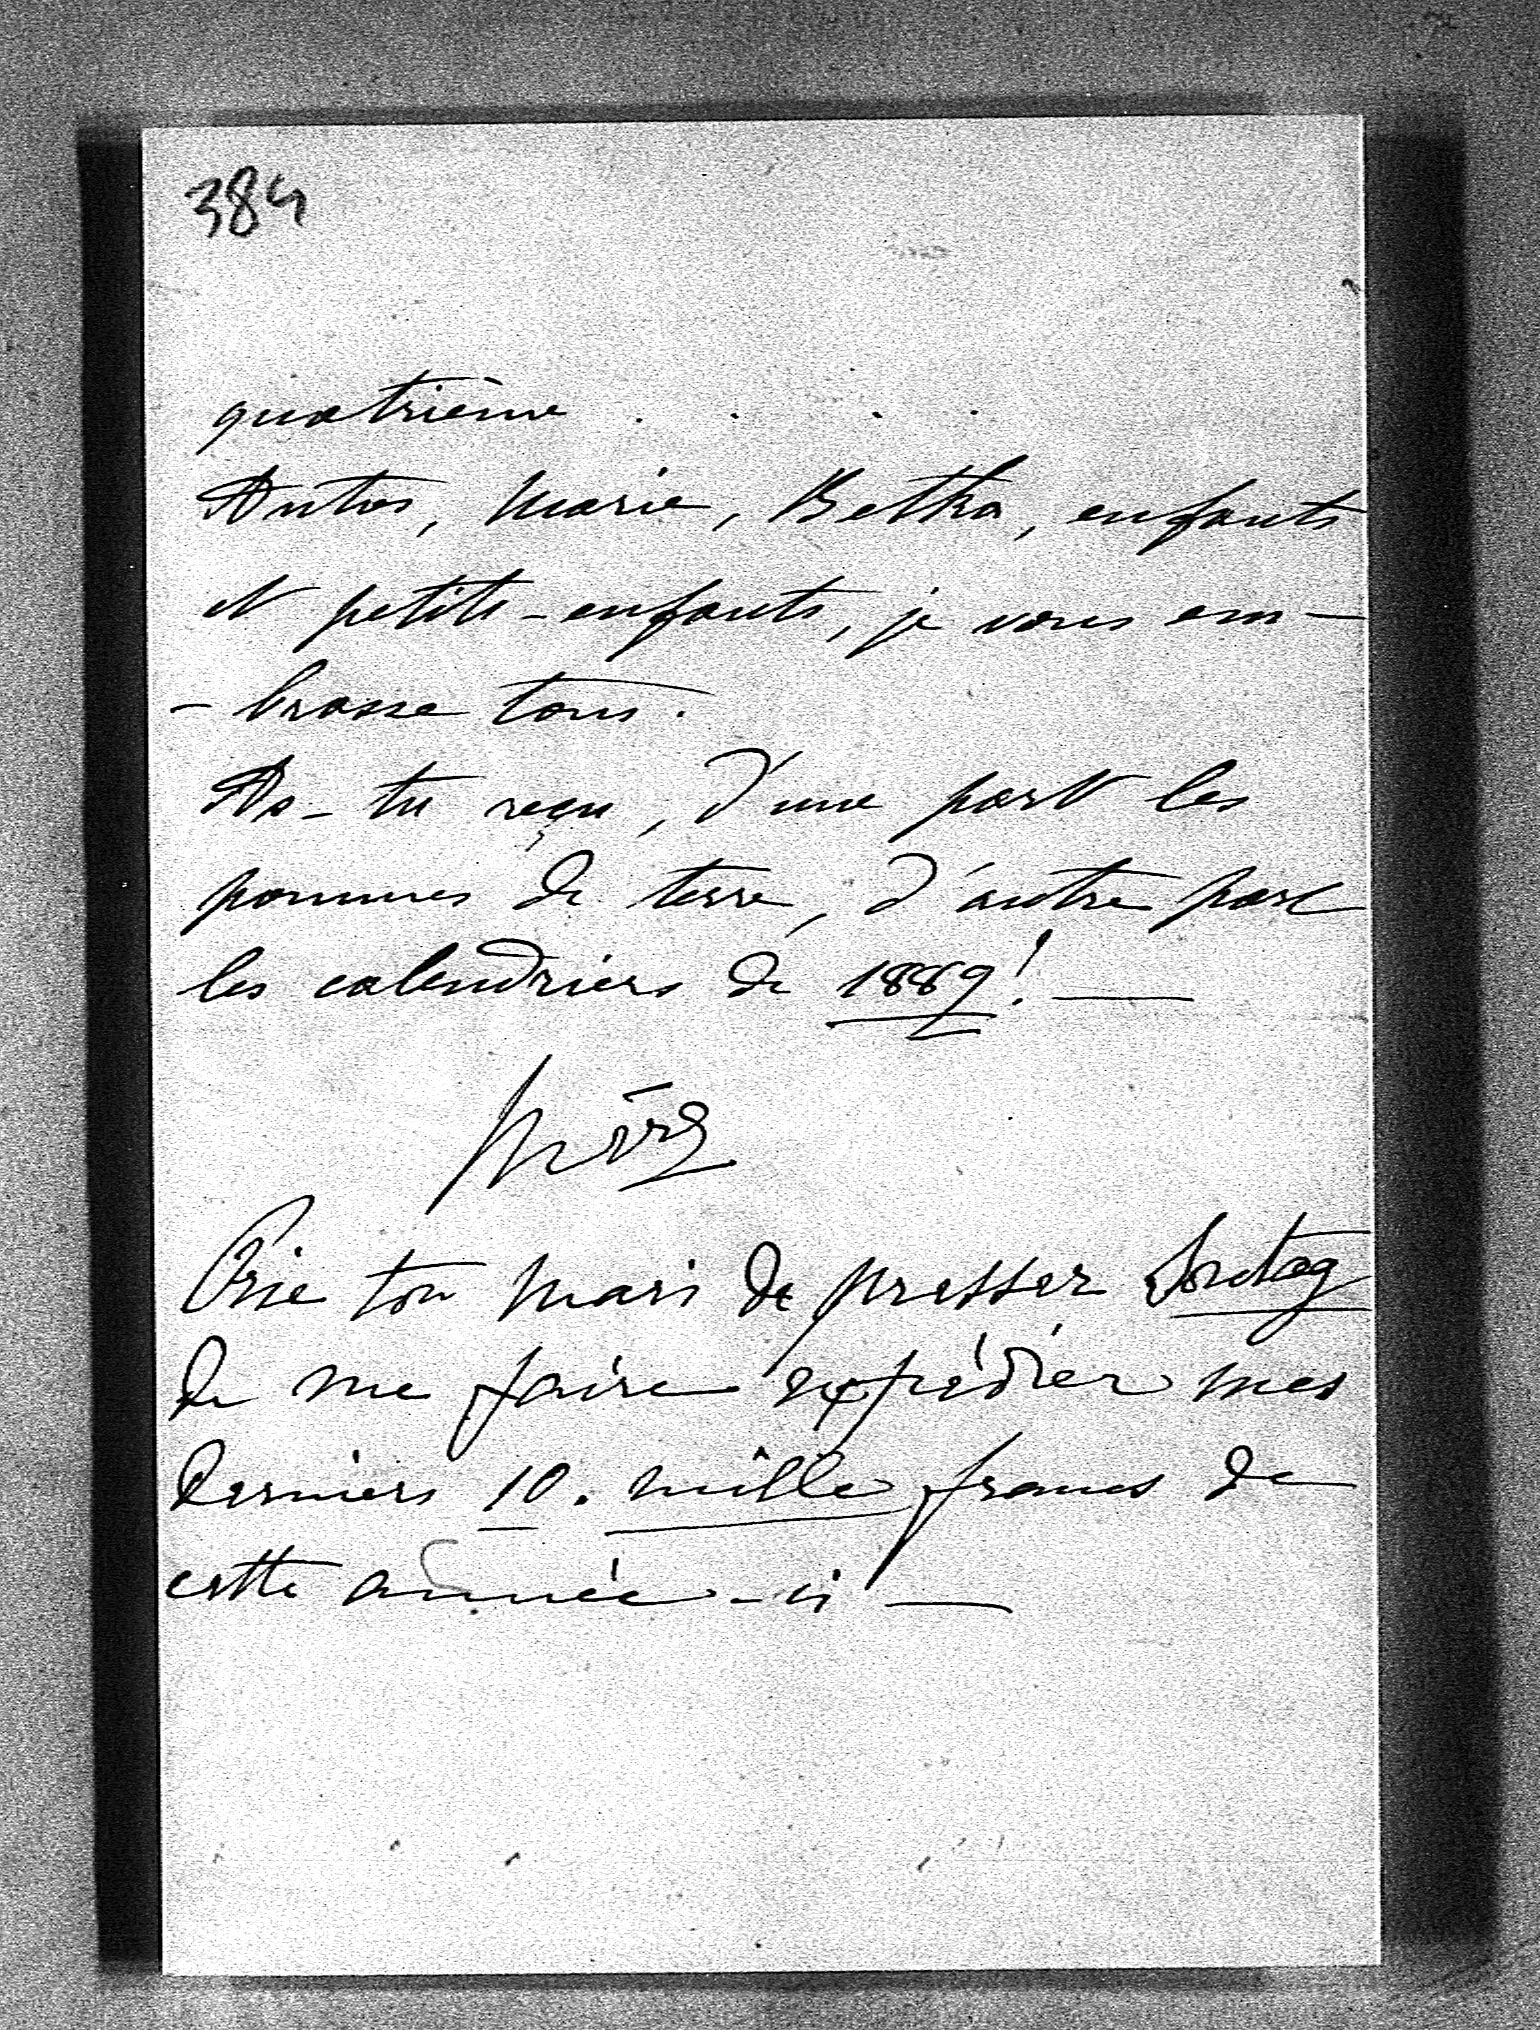 384
quatrième . . . .
Antos, Marie, Betka, enfants
et petits-enfants, je vous em-
- brasse tous.
As-tu reçu, d'une part les
pommes de terre, d'autre part
les calendriers de 1889! —
Prie ton mari de presser Sontag
de me faire expédier mes
derniers 10. mille francs de
cette année-ci —